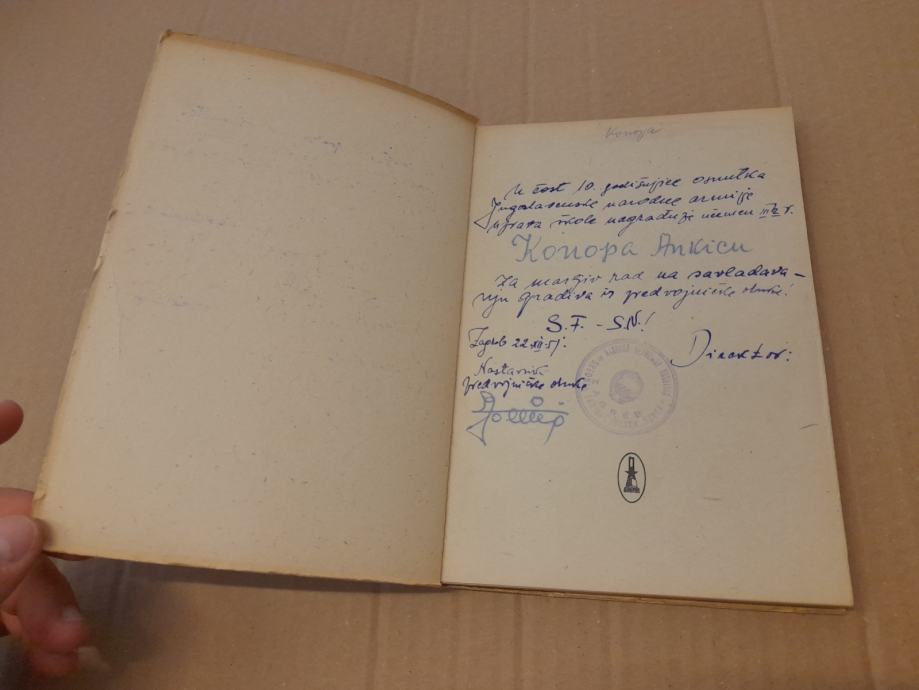 Konopa
U čast 10. godišnjice osnutka
Jugoslavenske narodne armije
uprava škole nagrađuje učenicu III r.
Konopa Ankicu
Za marljiv rad na savladava-
nju gradiva iz predvojničke obuke!
S.F. - S.N!
Zagreb 22.XII.51.
Direktor:
Nastavnik
predvojničke obuke